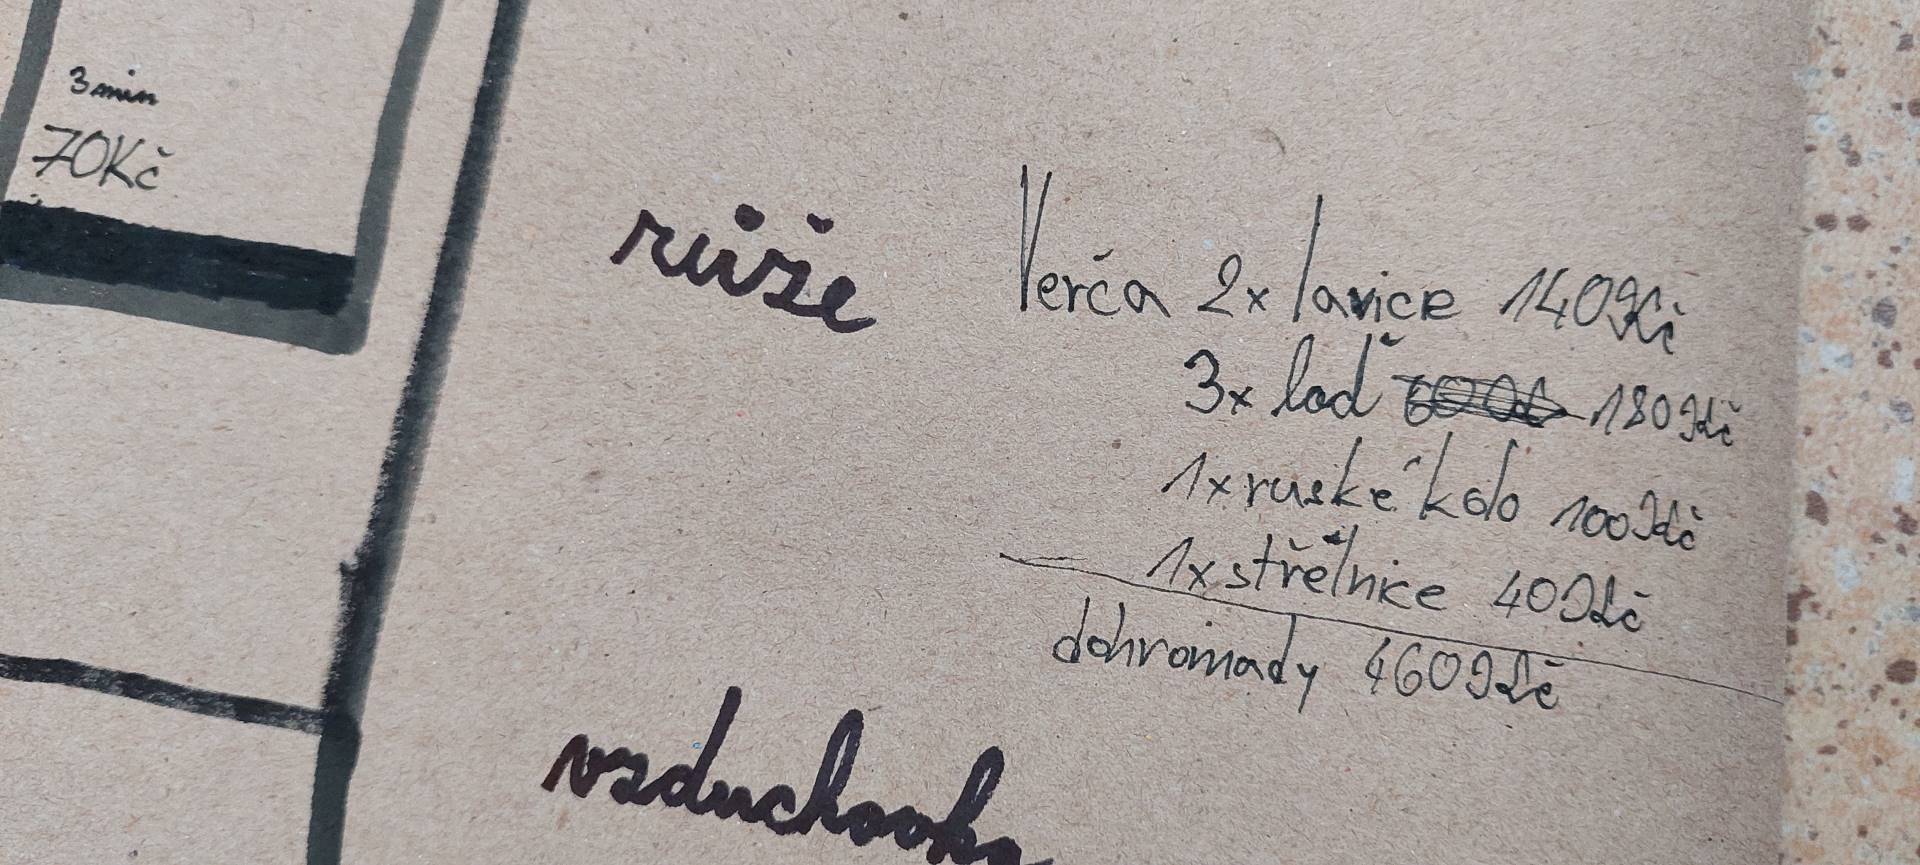 3min
70Kč
růže
Verča 2x lavice 140Kč
3x loď 180Kč
1x ruské kolo 100Kč
1x střelnice 40Kč
dohromady 460Kč